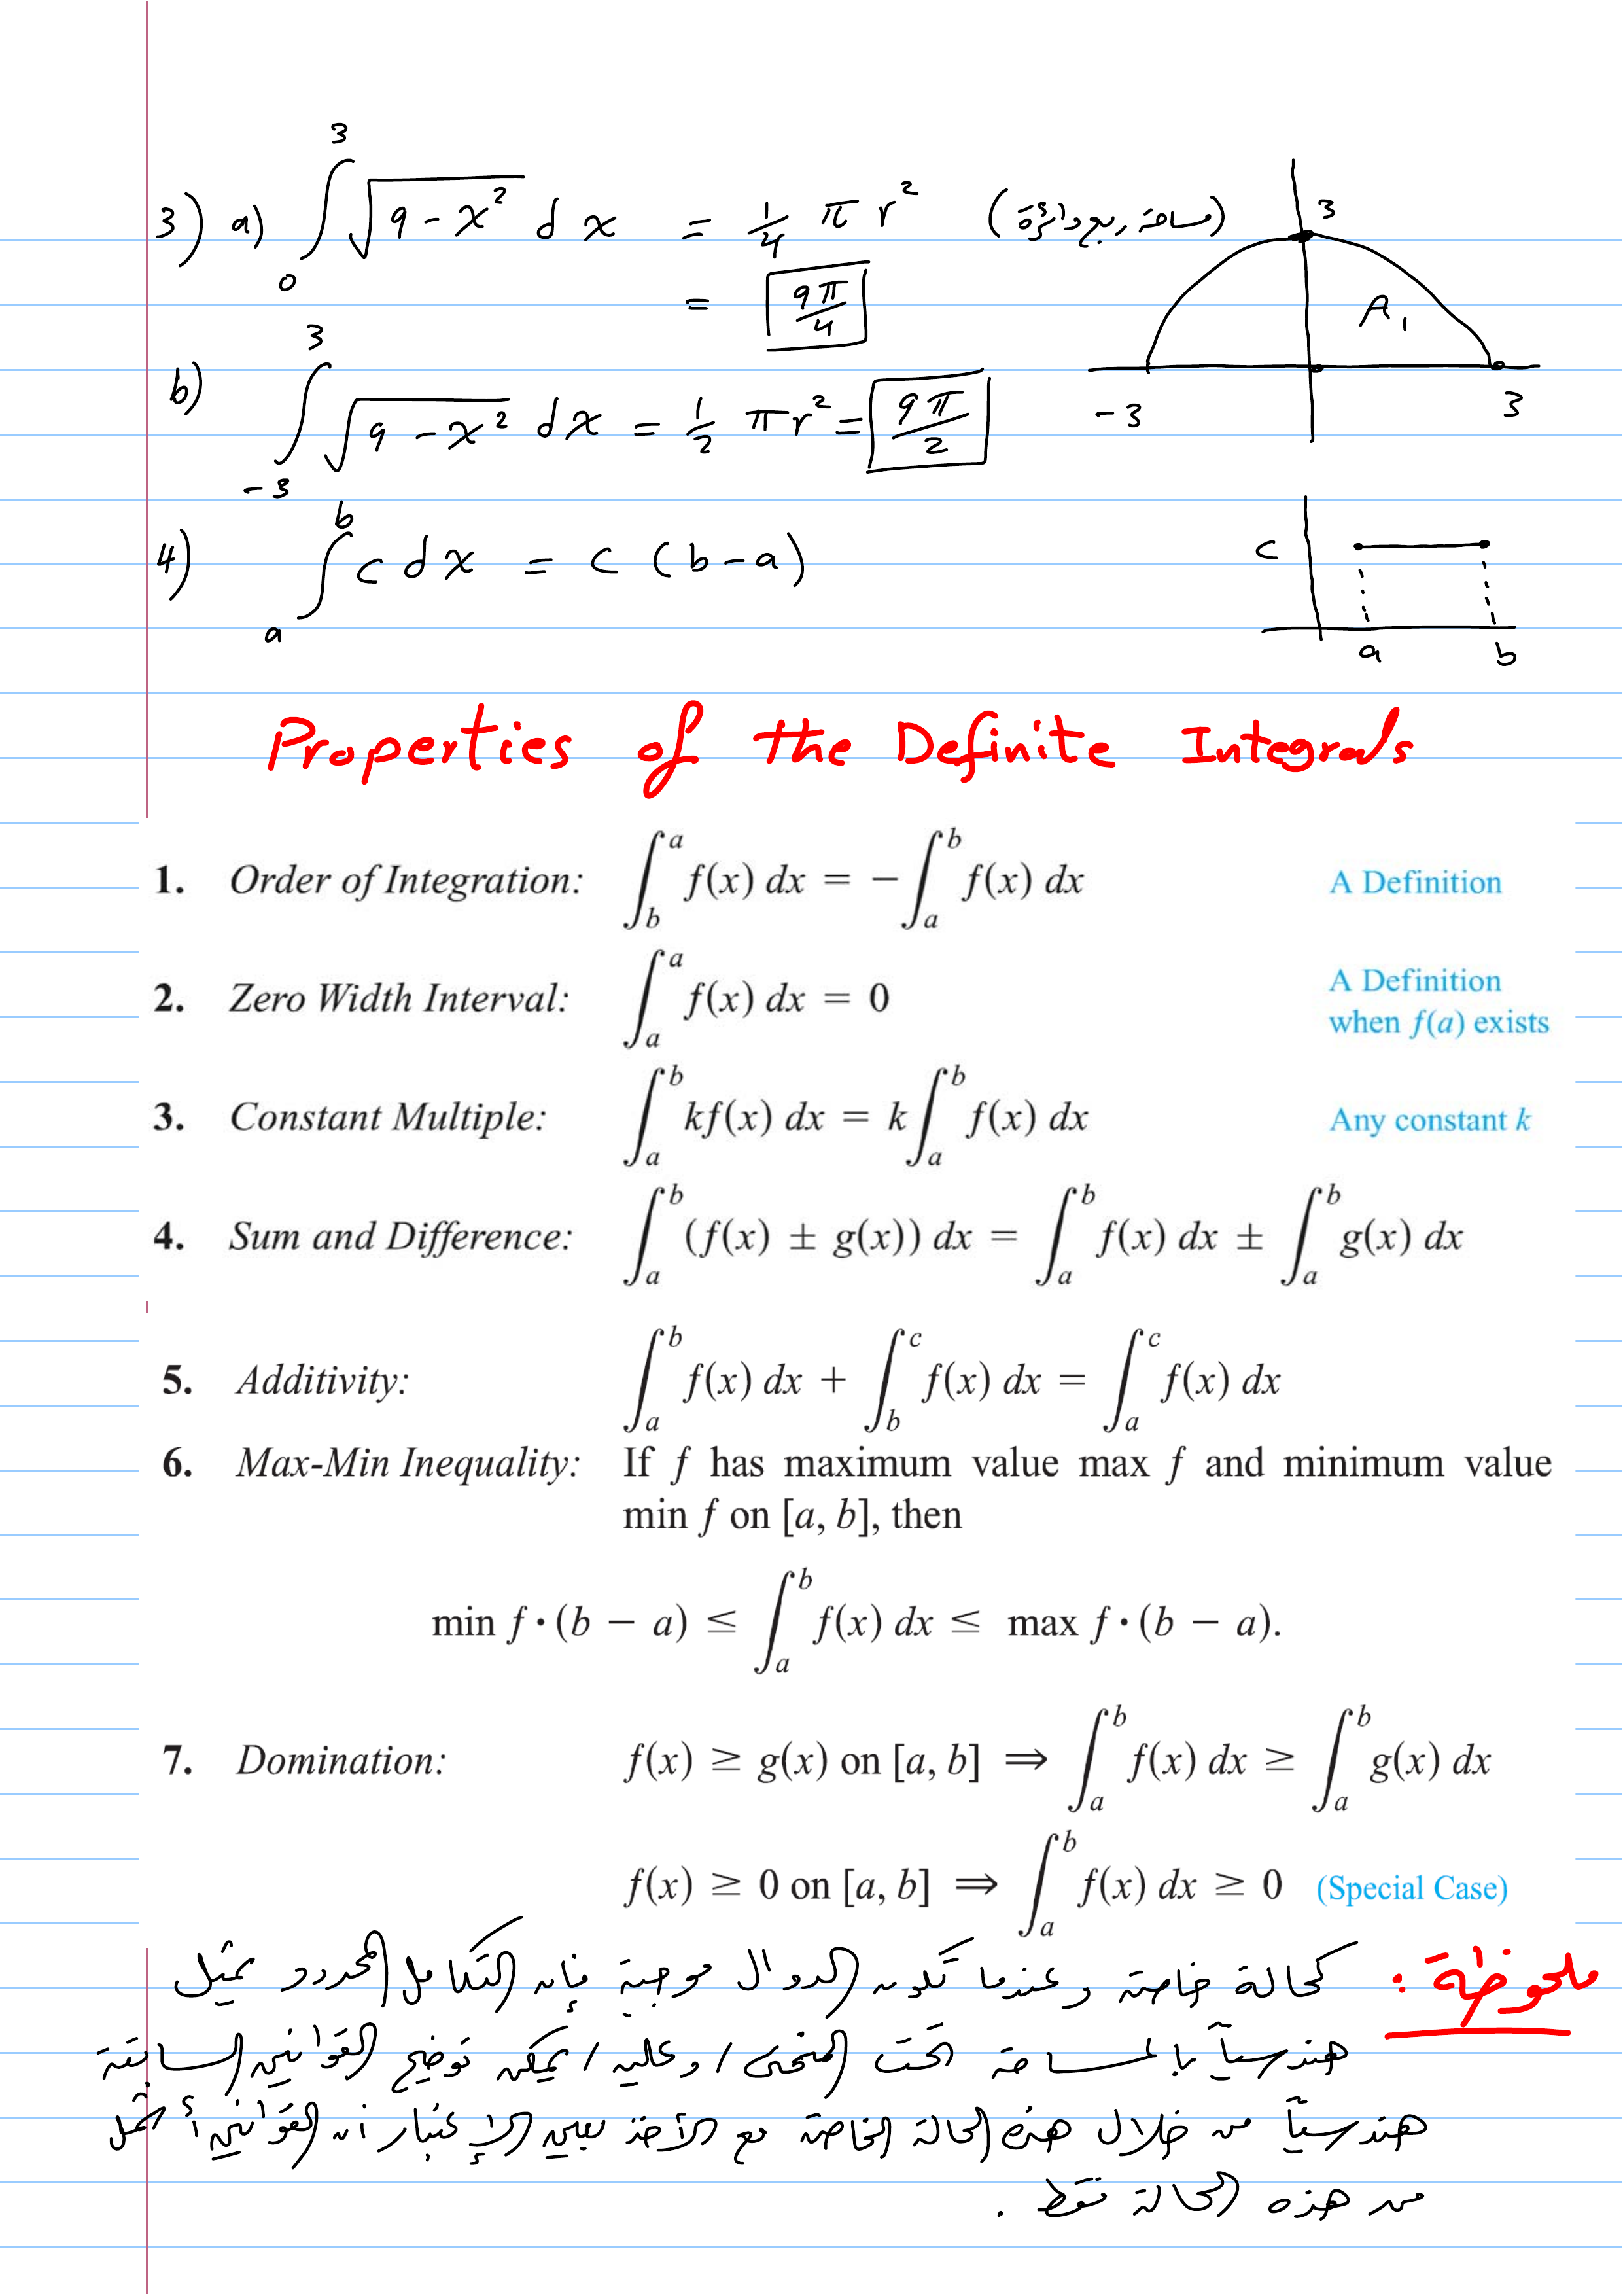 3) a) ∫₀³ √(9 - x²) dx = 1/4 π r² (مساحة ربع دائرة)
= 9π/4
b) ∫₋₃³ √(9 - x²) dx = 1/2 πr² = 9π/2
3
A₁
-3 3
4) ∫ₐᵇ c dx = c (b-a)
c
a b
Properties of the Definite Integrals
1. Order of Integration: ∫_b^a f(x) dx = -∫_a^b f(x) dx A Definition
2. Zero Width Interval: ∫_a^a f(x) dx = 0 A Definition
when f(a) exists
3. Constant Multiple: ∫_a^b kf(x) dx = k∫_a^b f(x) dx Any constant k
4. Sum and Difference: ∫_a^b (f(x) ± g(x)) dx = ∫_a^b f(x) dx ± ∫_a^b g(x) dx
5. Additivity: ∫_a^b f(x) dx + ∫_b^c f(x) dx = ∫_a^c f(x) dx
6. Max-Min Inequality: If f has maximum value max f and minimum value
min f on [a, b], then
min f · (b − a) ≤ ∫_a^b f(x) dx ≤ max f · (b − a).
7. Domination: f(x) ≥ g(x) on [a, b] ⇒ ∫_a^b f(x) dx ≥ ∫_a^b g(x) dx
f(x) ≥ 0 on [a, b] ⇒ ∫_a^b f(x) dx ≥ 0 (Special Case)
ملحوظة : كحالة خاصة وعندما تكون الدوال موجبة فإن التكامل المحدود يمثل
هندسياً بالمساحة تحت المنحنى، وعليه، يمكن توضيح القوانين السابقة
هندسياً من خلال هذه الحالة الخاصة مع الأخذ بعين الإعتبار أن القوانين أشمل
من هذه الحالة فقط .